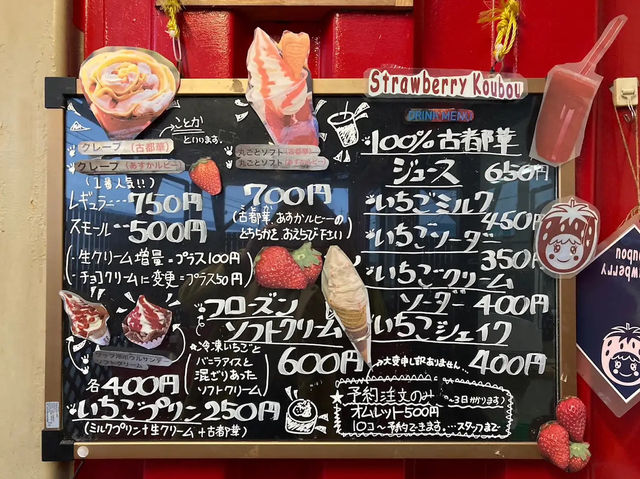 Strawberry Koubou
DRINK MENU
クレープ(古都華)
クレープ(あすかルビー)
ことか
といいます。
(1番人気!!)
レギュラー…750円
スモール…500円
・生クリーム増量=プラス100円
・チョコクリームに変更=プラス50円
丸ごとソフト(古都華)
丸ごとソフト(あすかルビー)
700円
(古都華、あすかルビーの
どちらかを、おえらび下さい)
フローズン
ソフトクリーム
600円
冷凍いちごと
バニラアイスと
混ざりあった
ソフトクリーム
ソフトクリーム
各400円
いちごプリン250円
(ミルクプリン+生クリーム+古都華)
100%古都華
ジュース 650円
いちごミルク
450円
いちごソーダー
350円
いちごクリーム
ソーダー400円
いちごシェイク
400円
大変申し訳ありません…
予約注文のみ
～3日かかります)
オムレット500円
10コ～予約できます。…スタッフまで